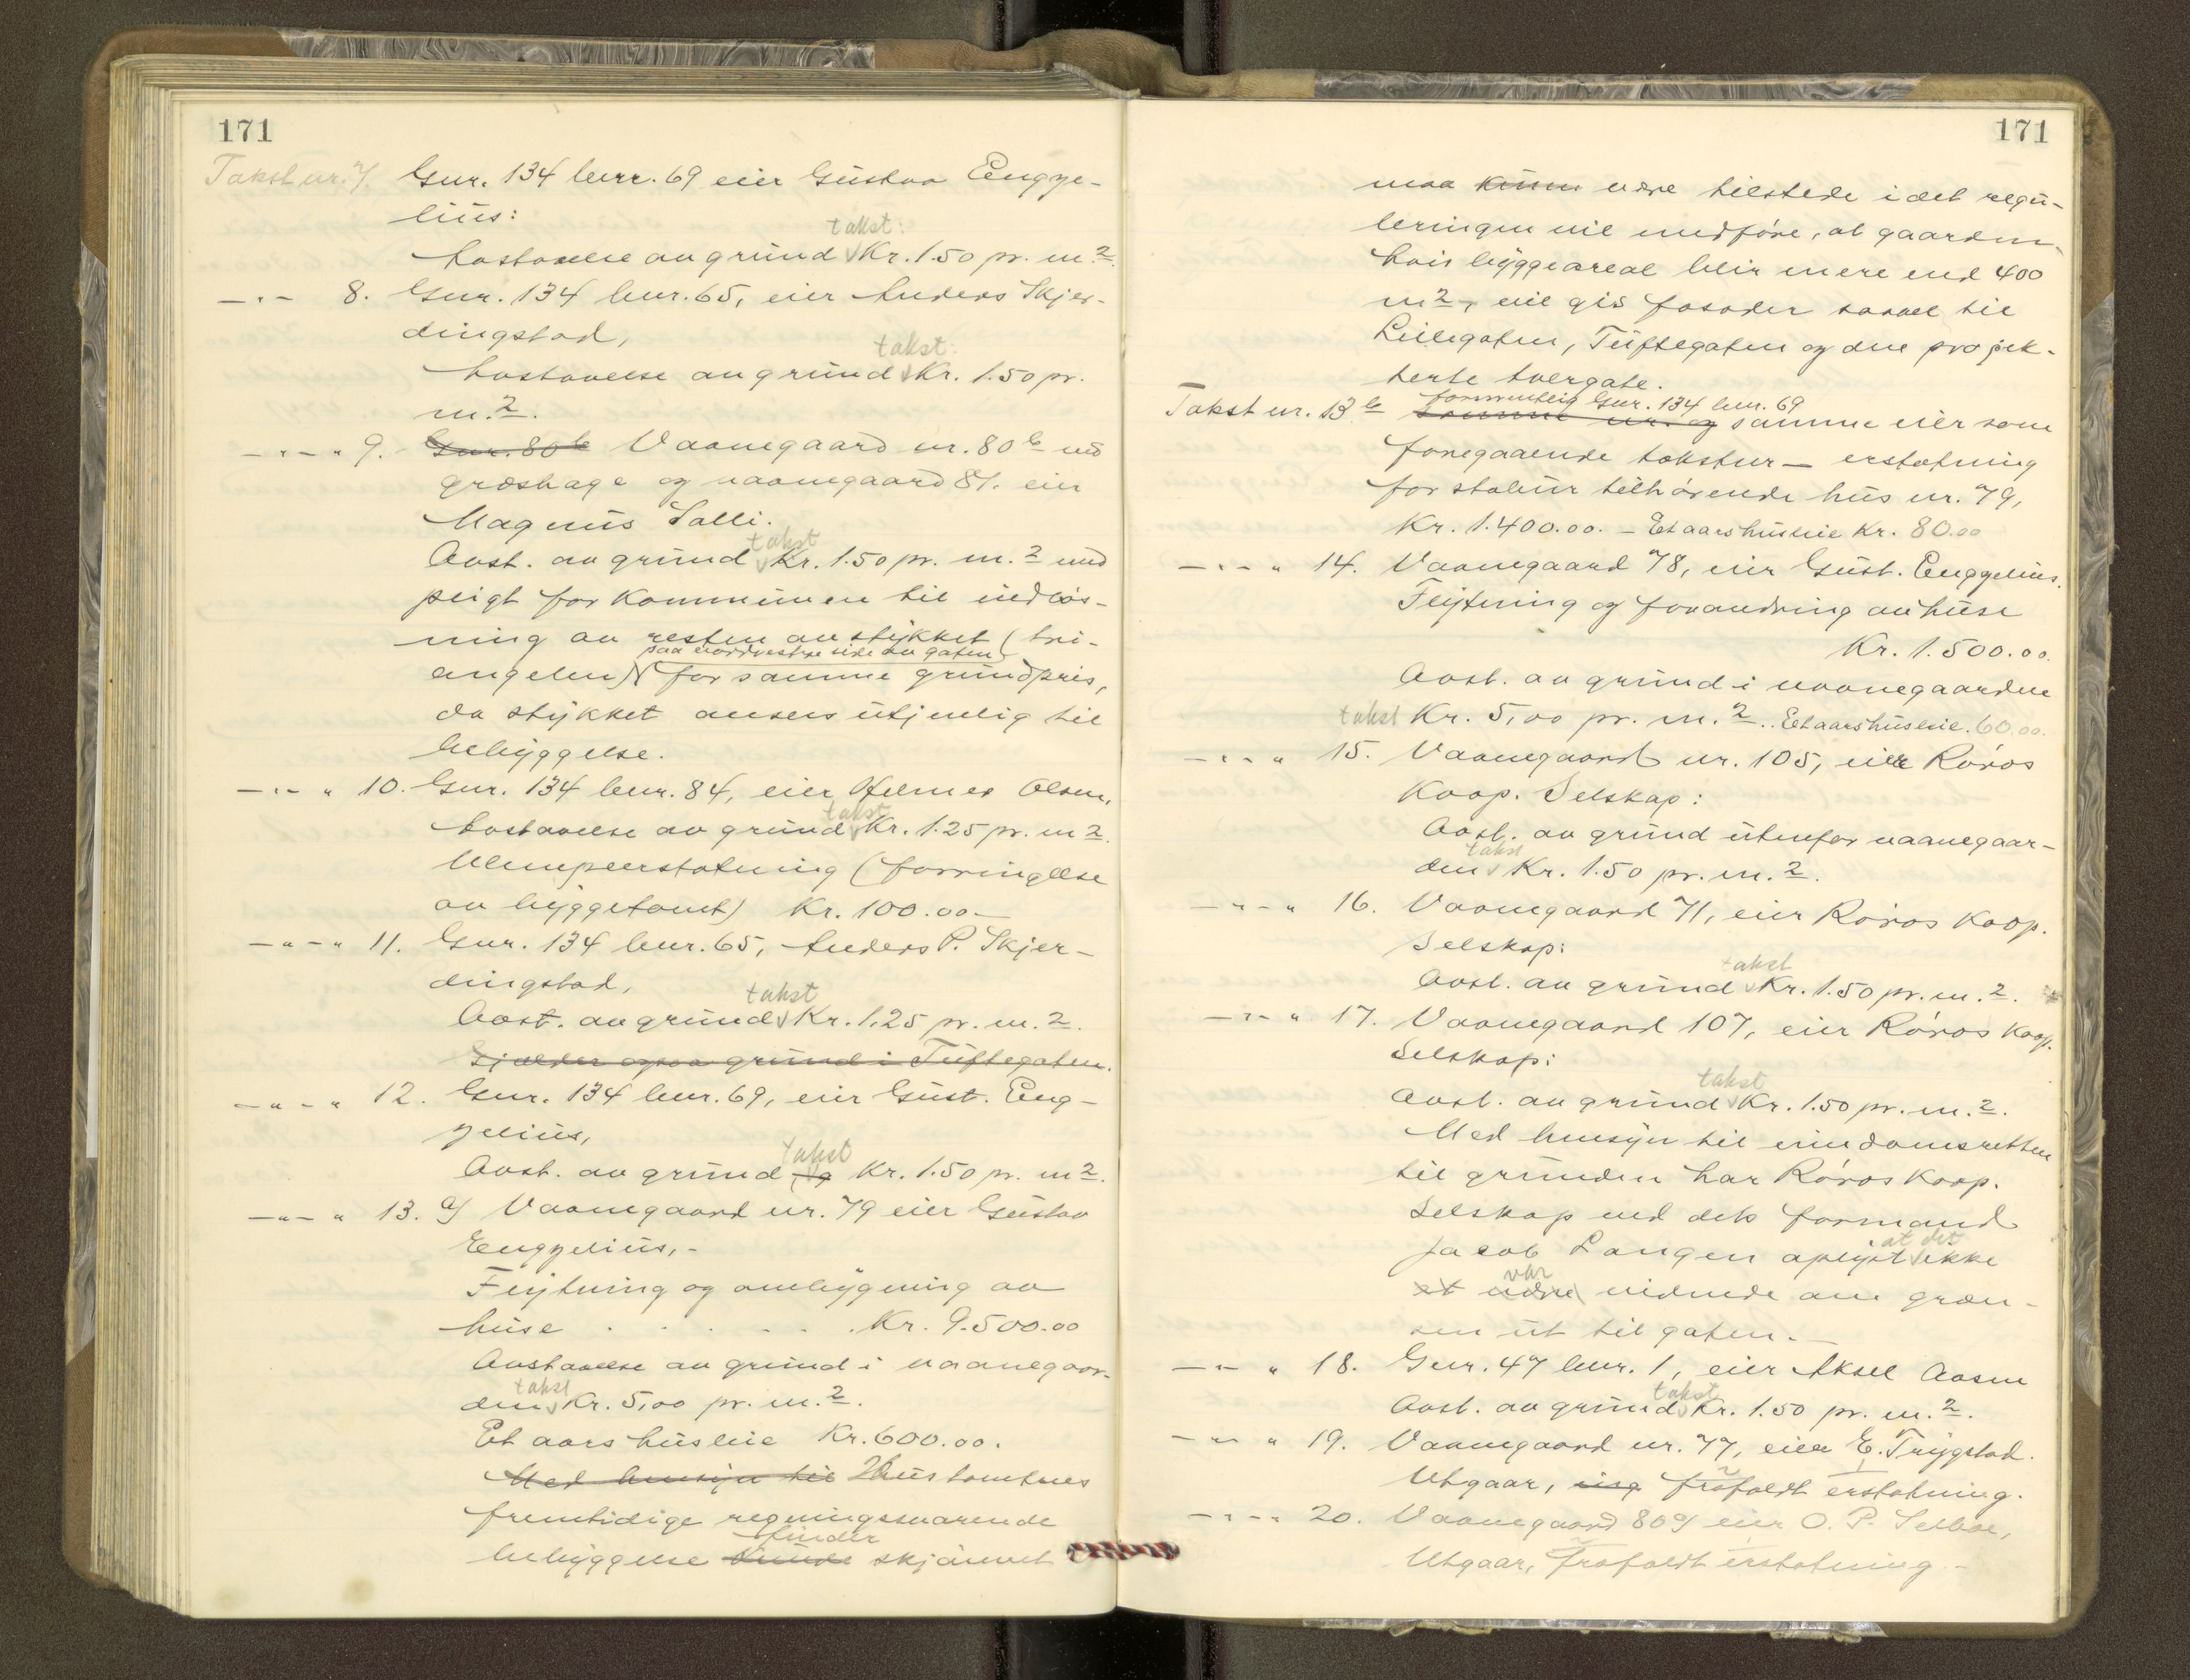 171
Takst nr. 7. Gnr. 134 bnr. 69 eier Gustav Engze-
lius:
takst:
Avstaaelse av grund Kr. 1.50 pr. m.2.
— " — 8. Gnr. 134 bnr. 65, eier Anders Skjer-
dingstad,
takst:
Avstaaelse av grund Kr. 1.50 pr.
m.2.
— " — " 9. Gnr. 80b Vaanegaard nr. 80b med
græshage og vaanegaard 81. eier
Magnus Salli.
takst
Avst. av grund Kr. 1.50 pr. m.2 med
pligt for Kommunen til indløs-
ning av resten av stykket (tri-
paa nordvestre side av gaten
angelen) for samme grundpris,
da stykket ansees utjenlig til
bebyggelse.
— " — " 10. Gnr. 134 bnr. 84, eier Helmer Olsen,
takst
Avstaaelse av grund Kr. 1.25 pr. m2.
Ulempeerstatning (forringelse
av byggetomt) Kr. 100.00—
— " — " 11. Gnr. 134 bnr. 65, Anders P. Skjer-
dingstad,
takst
Avst. av grund Kr. 1.25 pr. m.2.
Gjælder ogsaa grund i Tuftegaten.
— " — " 12. Gnr. 134 bnr. 69, eier Gust. Eng-
zelius,
takst
Avst. av grund Kr. 1.50 pr. m2.
— " — " 13. a) Vaanegaard nr. 79 eier Gustav
Engzelius,-
Flytning og ombygning av
huse . . . . . . Kr. 9.500.00
Avstaaelse av grund i vaanegaar-
takst
den Kr. 5,00 pr. m.2.
Et aars husleie Kr. 600.00.
Med hensyn til Hustomtenes
fremtidige regningssvarende
finder
bebyggelse kunde skjønnet
171
maa kunne være tilstede idet regu-
leringen vil medføre, at gaarden,
hvis byggeareal blir mere end 400
m2, vil gis fasader saavel til
Lillegaten, Tuftegaten og den projek-
terte tvergate.
formentlig Gnr. 134 bnr. 69
Takst nr. 13b Samme nr. og samme eier som
foregaaende takstnr — erstatning
for stabur tilhørende hus nr. 79,
Kr. 1.400.00. — Et aars husleie Kr. 80.00
— " — " 14. Vaanegaard 78, eier Gust. Engzelius.
Flytning og forandring av huse
Kr. 1.500.00.
Avst. av grund i vaanegaarden
takst Kr. 5,00 pr. m.2. Et aars husleie. 60.00.
— " — " 15. Vaanegaard nr. 105, eier Røros
Koop. Selskap:
Avst. av grund utenfor vaanegaar-
takst
den Kr. 1.50 pr. m.2.
— " — " 16. Vaanegaard 71, eier Røros Koop.
Selskap:
takst
Avst. av grund Kr. 1.50 pr. m.2.
— " — " 17. Vaanegaard 107, eier Røros Koop.
Selskap:
takst
Avst. av grund Kr. 1.50 pr. m.2.
Med hensyn til eiendomsretten
til grunden har Røros Koop.
Selskap ved dets formand
at det
Jacob Langen oplyst ikke
var
at være vidende om græn-
sen ut til gaten.—
— " — " 18. Gnr. 47 bnr. 1, eier Aksel Aasen
takst
Avst. av grund Kr. 1.50 pr. m.2.
— " — " 19. Vaanegaard nr. 77, eier E. Trygstad.
Utgaar, frafaldt erstatning.
— " — " 20. Vaanegaard 80a) eier O. P. Selboe,
Utgaar, frafaldt erstatning —